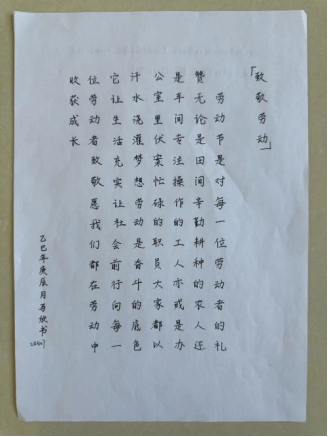 「致敬劳动」
劳动节是对每一位劳动者的礼
赞无论是田间辛勤耕种的农人还
是车间专注操作的工人亦或是办
公室里伏案忙碌的职员大家都以
汗水浇灌梦想劳动是奋斗的底色
它让生活充实让社会前行向每一
位劳动者致敬愿我们都在劳动中
收获成长
乙巳年庚辰月书